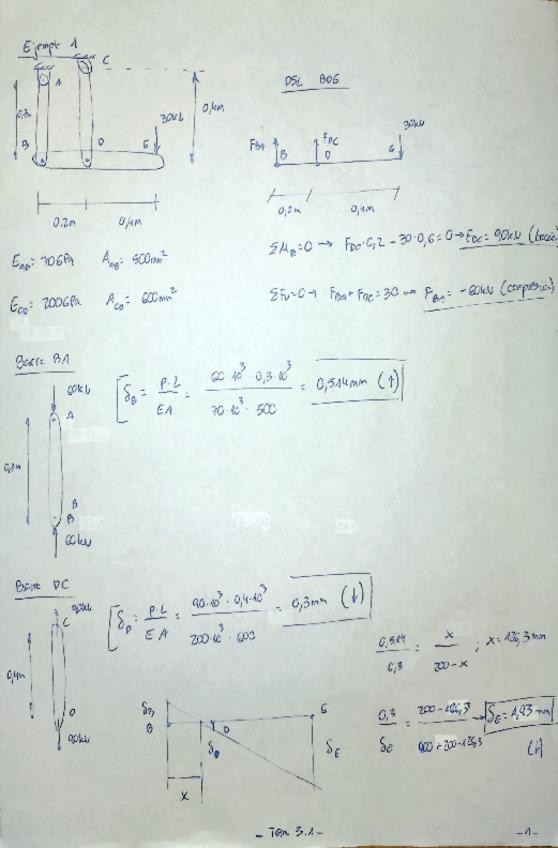 Ejemplo 1
C
A
0,3m
30kN
0,4m
B
D
E
0.2m
0,4m
DSL BDE
F_BA
B
F_DC
D
E
30kN
0,2m
0,4m
E_AB = 70GPa A_AB = 500mm²
E_CD = 200GPa A_CD = 600mm²
ΣM_B = 0 → F_DC · 0,2 - 30 · 0,6 = 0 → F_DC = 90kN
ΣF_V = 0 → F_BA + F_DC = 30 → F_BA = -60kN (compresión)
Barra BA
60kN
A
0,3m
B
B
60kN
δ_B = P·L / EA = 60·10³ · 0,3·10³ / 70·10³ · 500 = 0,514mm (↑)
Barra DC
90kN
C
0,4m
D
90kN
δ_D = P·L / EA = 90·10³ · 0,4·10³ / 200·10³ · 600 = 0,3mm (↓)
0,514 / 0,3 = x / 200-x ; x = 126,3mm
δ_B
B
D
δ_D
E
δ_E
x
0,3 / δ_E = 200-126,3 / 400+200-126,3 → δ_E = 1,93mm
(↓)
- Tema 3.1 -
-1-